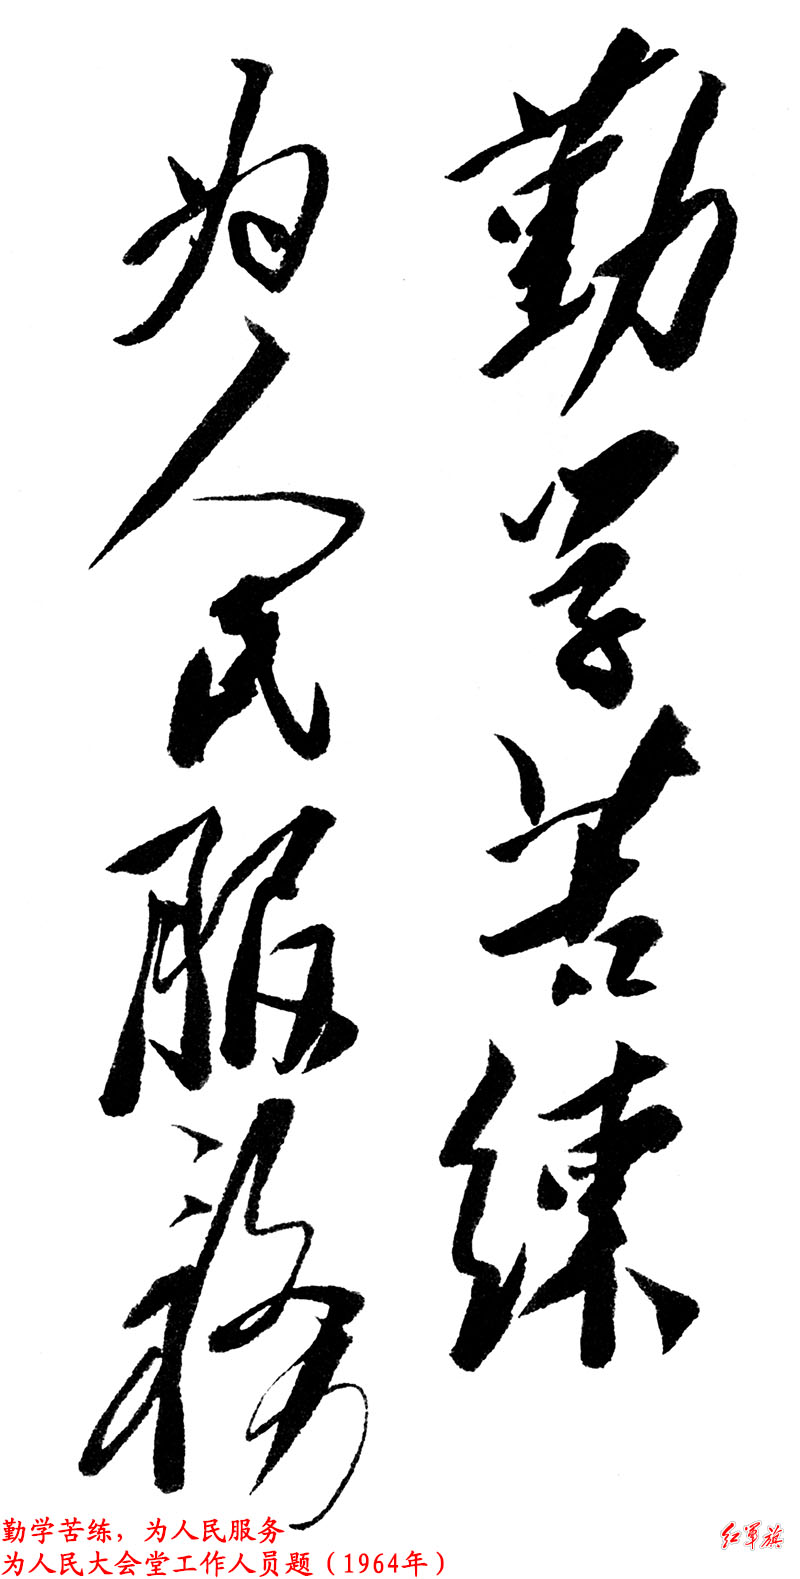 勤学苦練
为人民服務
勤学苦练，为人民服务
为人民大会堂工作人员题（1964年）
红军旗